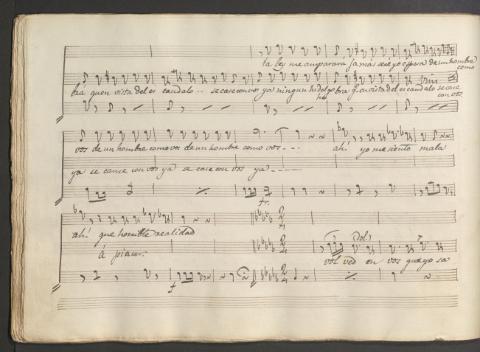 ta ley me amparara jamas sere yo esposa de un hombre
como
bra quien vista del es candalo -- se case con vos ya ningun hidalgo habra q. a vista del escandalo se case
con vos
vos de un hombre como vos de un hombre como vos --- ahi yo me siento mala
ya se case con vos ya se case con vos ya ----
fr.
ahi que horrible realidad
á piacer. dol.
f volved en vos que ya sa